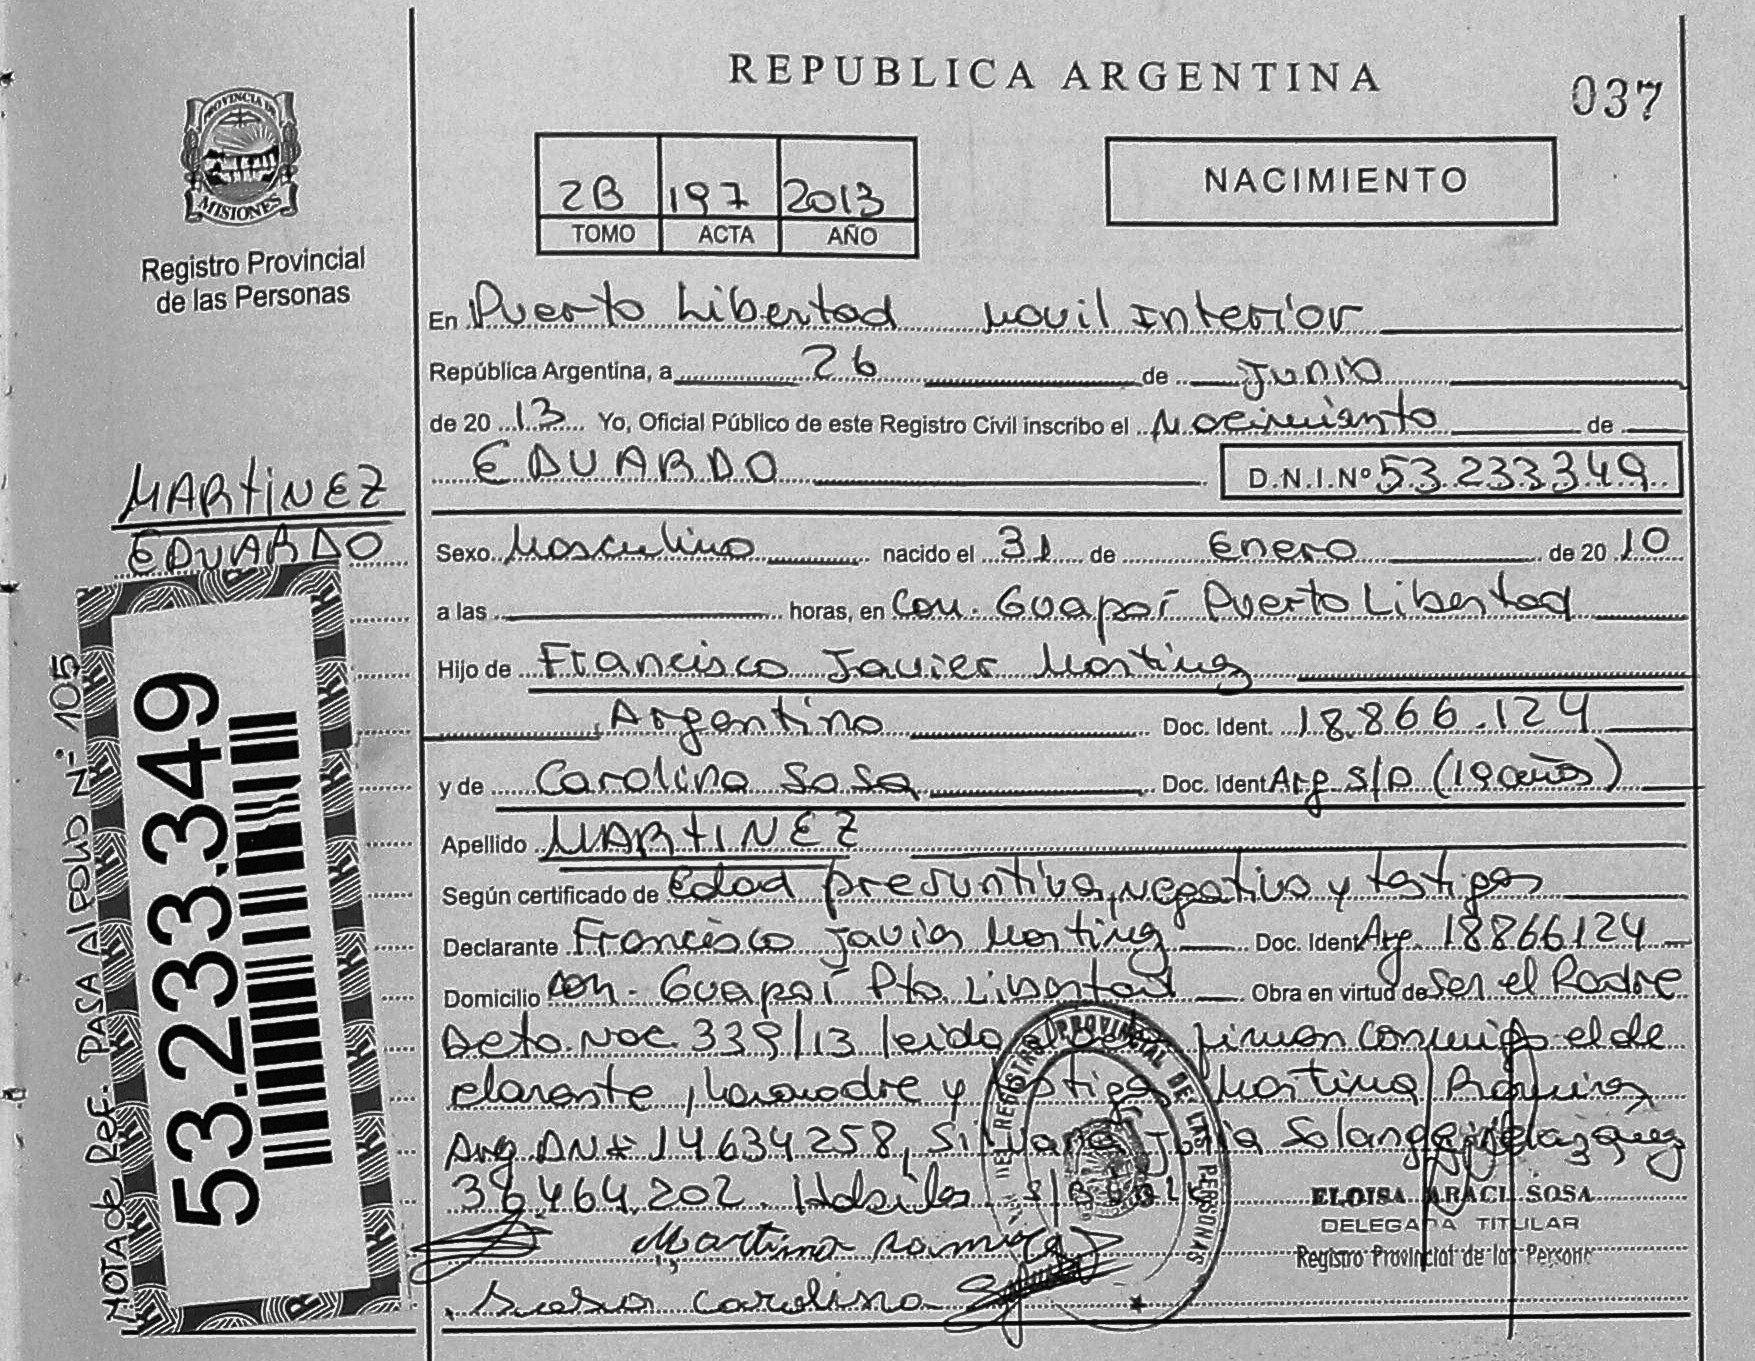 REPUBLICA ARGENTINA
037
PROVINCIA DE
MISIONES
Registro Provincial
de las Personas
2B 197 2013
TOMO ACTA AÑO
NACIMIENTO
En Puerto Libertad Movil Interior
República Argentina, a 26 de Junio
de 20 13 Yo, Oficial Público de este Registro Civil inscribo el Nacimiento de
EDUARDO D.N.I.Nº 53.233.349
MARTINEZ
EDUARDO
Sexo Masculino nacido el 31 de Enero de 20 10
a las horas, en Com. Guapoí Puerto Libertad
Hijo de Francisco Javier Martinez
Argentino Doc. Ident. 18.866.124
y de Carolina Sosa Doc. Ident Arg S/D (19 años)
Apellido MARTINEZ
Según certificado de edad presuntiva, negativo y testigos
Declarante Francisco Javier Martinez Doc. Ident Arg. 18866124
Domicilio Com. Guapoí Pto. Libertad Obra en virtud de ser el Padre
Acta. Nac. 339/13 leida el acta firman conmigo el de
clarante, la madre y testigos Martina Ramirez
Arg DNI 14.634.258, Silvana Julia Solange Velazquez
36.464.202.
Martina Ramirez
Sosa Carolina
ELOISA ARACI SOSA
DELEGADA TITULAR
Registro Provincial de las Persona
REGISTRO PROVINCIAL DE LAS PERSONAS
53.233.349
NOTA de Ref. PASA Al FOLIO Nº 105